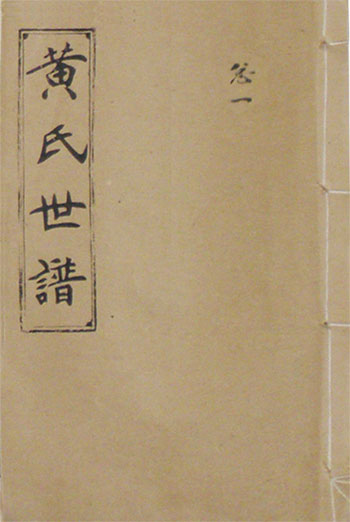 黄氏世譜
卷一